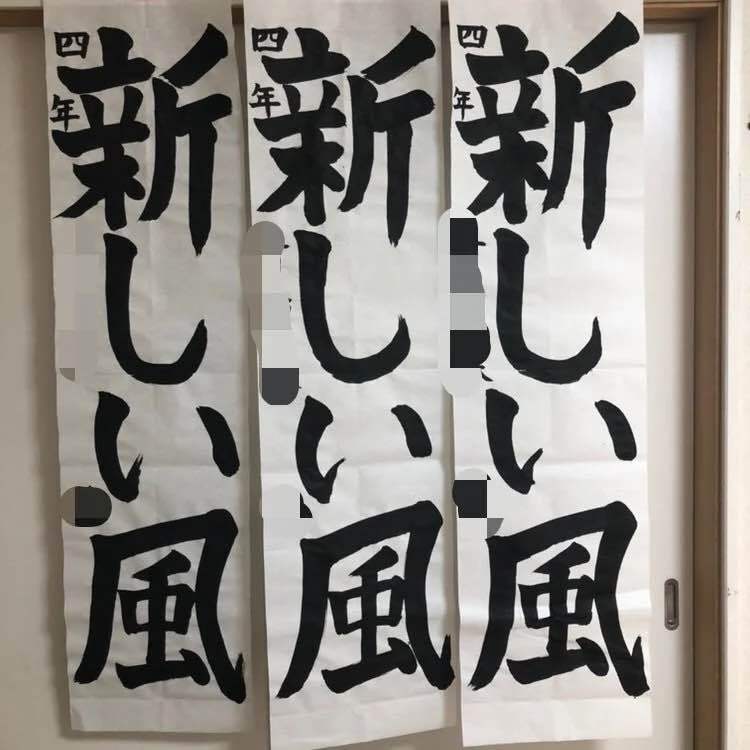 新しい風
四年
新しい風
四年
新しい風
四年